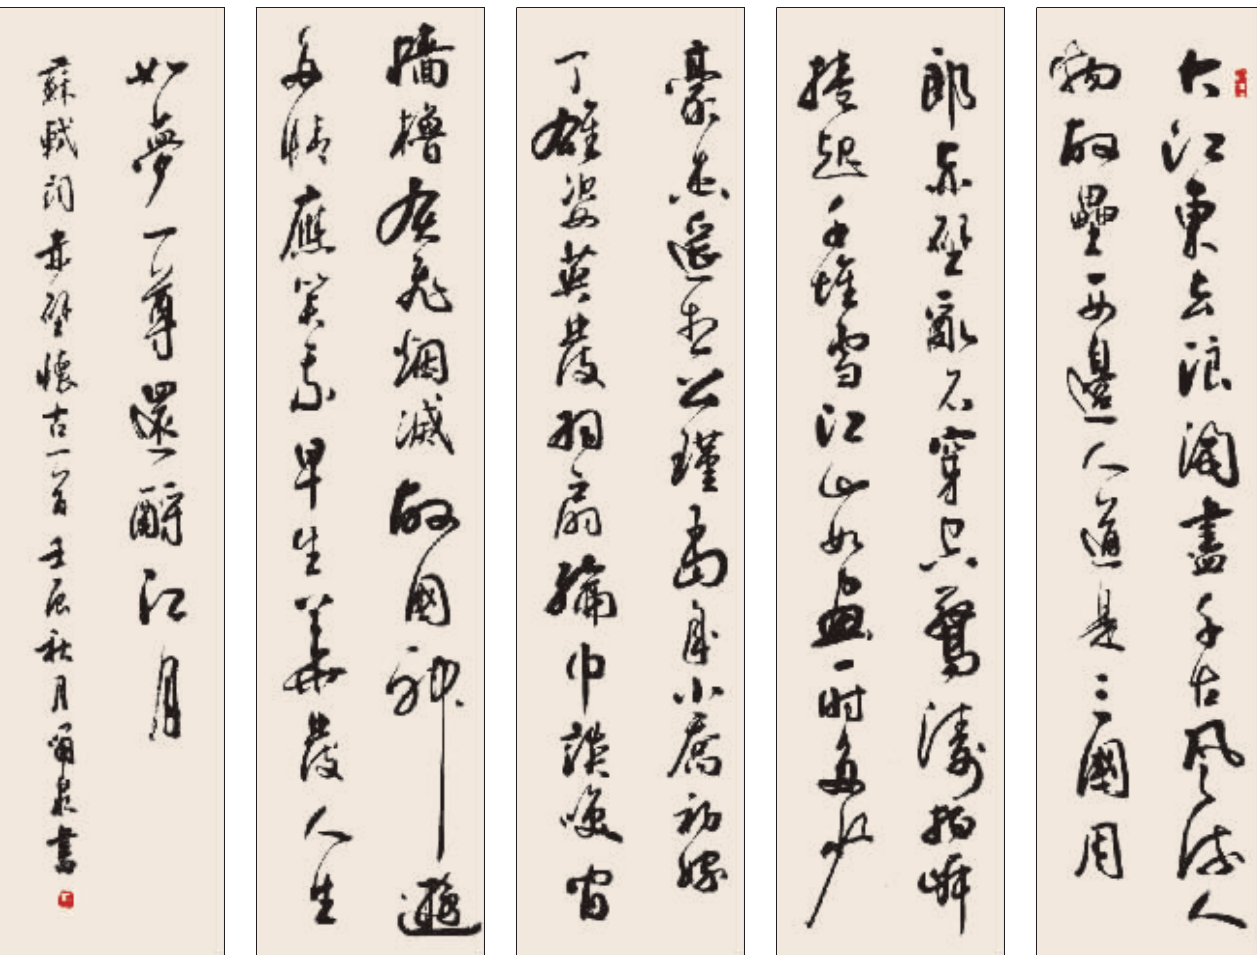 大江東去浪淘盡千古風流人
物故壘西邊人道是三國周
郎赤壁亂石穿空驚濤拍岸
捲起千堆雪江山如畫一時多少
豪杰遙想公瑾當年小喬初嫁
了雄姿英發羽扇綸巾談咲間
檣櫓灰飛烟滅故國神遊
多情應笑我早生華發人生
如夢一尊還酹江月
蘇軾詞赤壁懷古一首壬辰秋月泉書